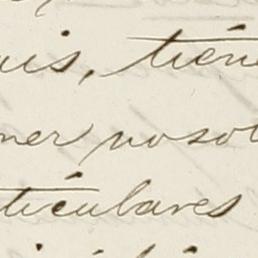 uis, tiene
ner nosot
ticulares